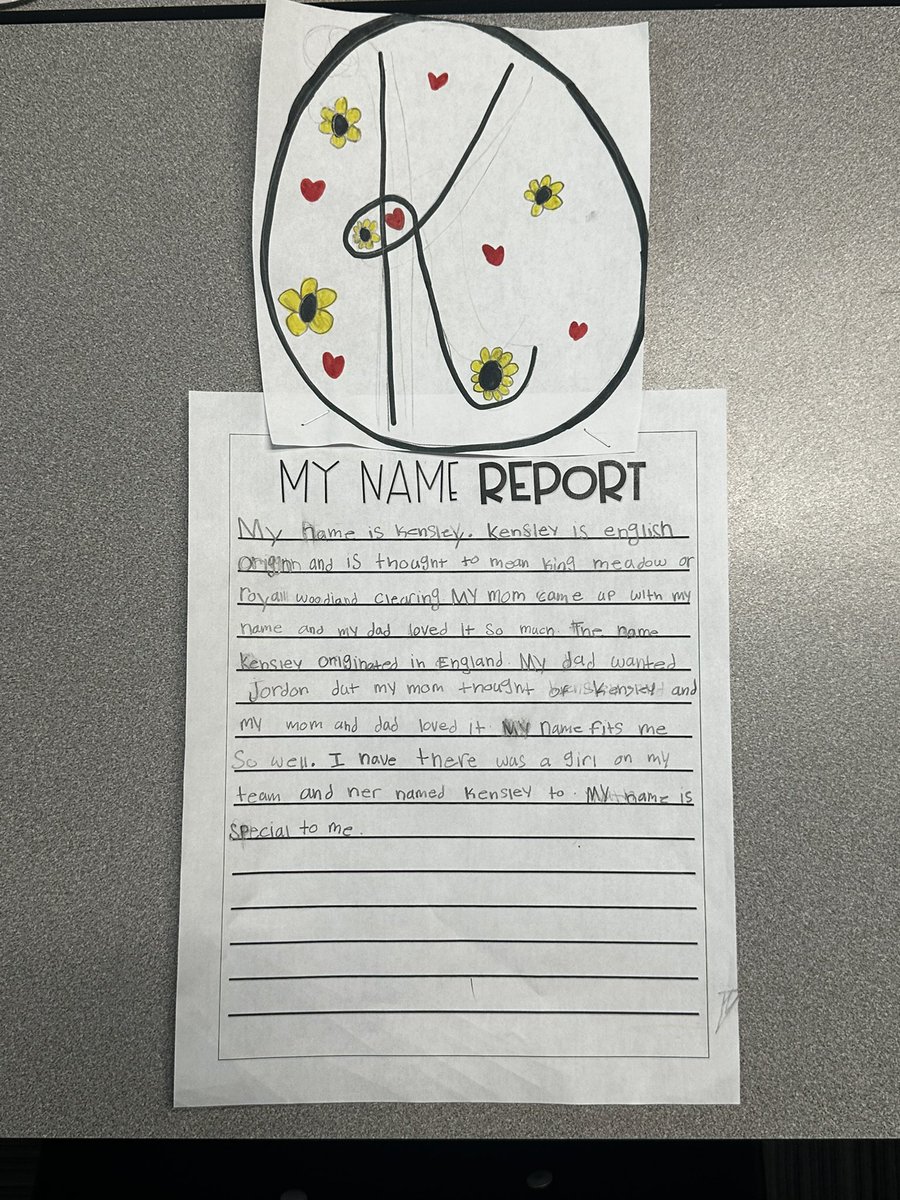 K
MY NAME REPORT
My name is Kensley. Kensley is english
origin and is thought to mean king meadow or
royall woodland clearing. MY mom came up with my
name and my dad loved it so much. The name
Kensley originated in England. My dad wanted
Jordon dut my mom thought of Kensley and
my mom and dad loved it. MY name fits me
So well. I have there was a girl on my
team and her named Kensley to. MY name is
special to me.